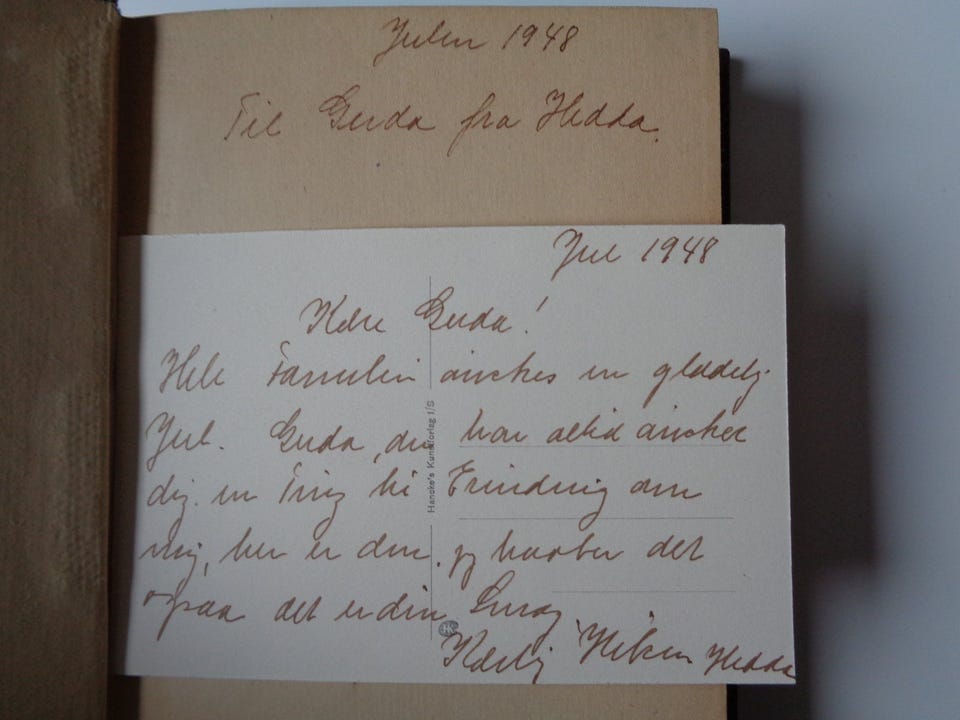 Julen 1948
Til Gerda fra Hedda.
Jul 1948
Kære Gerda!
Hele Familien ønskes en glædelig
Jul. Gerda, du har altid ønsket
dig en Ting til Erindring om
mig, her er den. jeg haaber det
ogsaa det er din Smag
Kærlig Hilsen Hedda
Hancke's Kunstforlag I/S